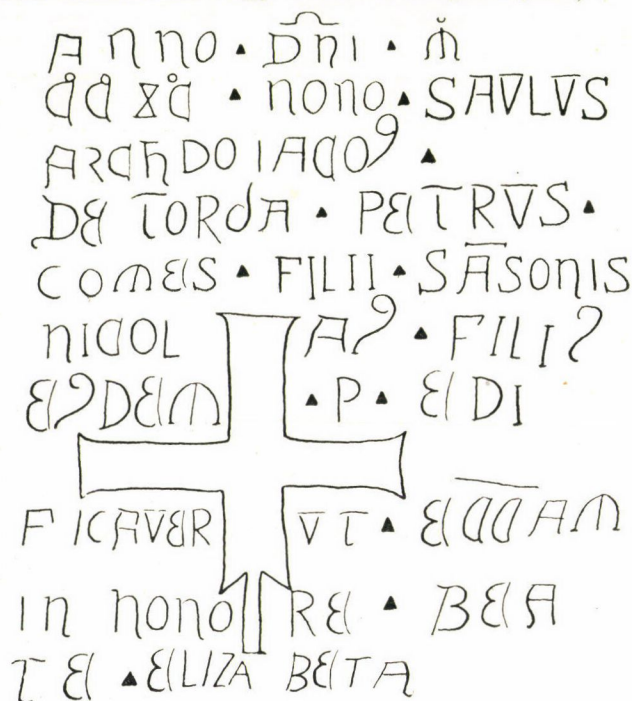 ANNO · DN̄I · M̊
CC̊ XC̊ · NONO · SAVLVS
ARCHDOIACOꝰ ·
DE TORDA · PETRVS ·
COMES · FILII · SĀSONIS
NICOLAꝰ · FILIꝰ
EꝰDEM · P · EDI
FICAVERVT · ECC̄AM
IN HONORE · BEA
TE · ELIZABETA